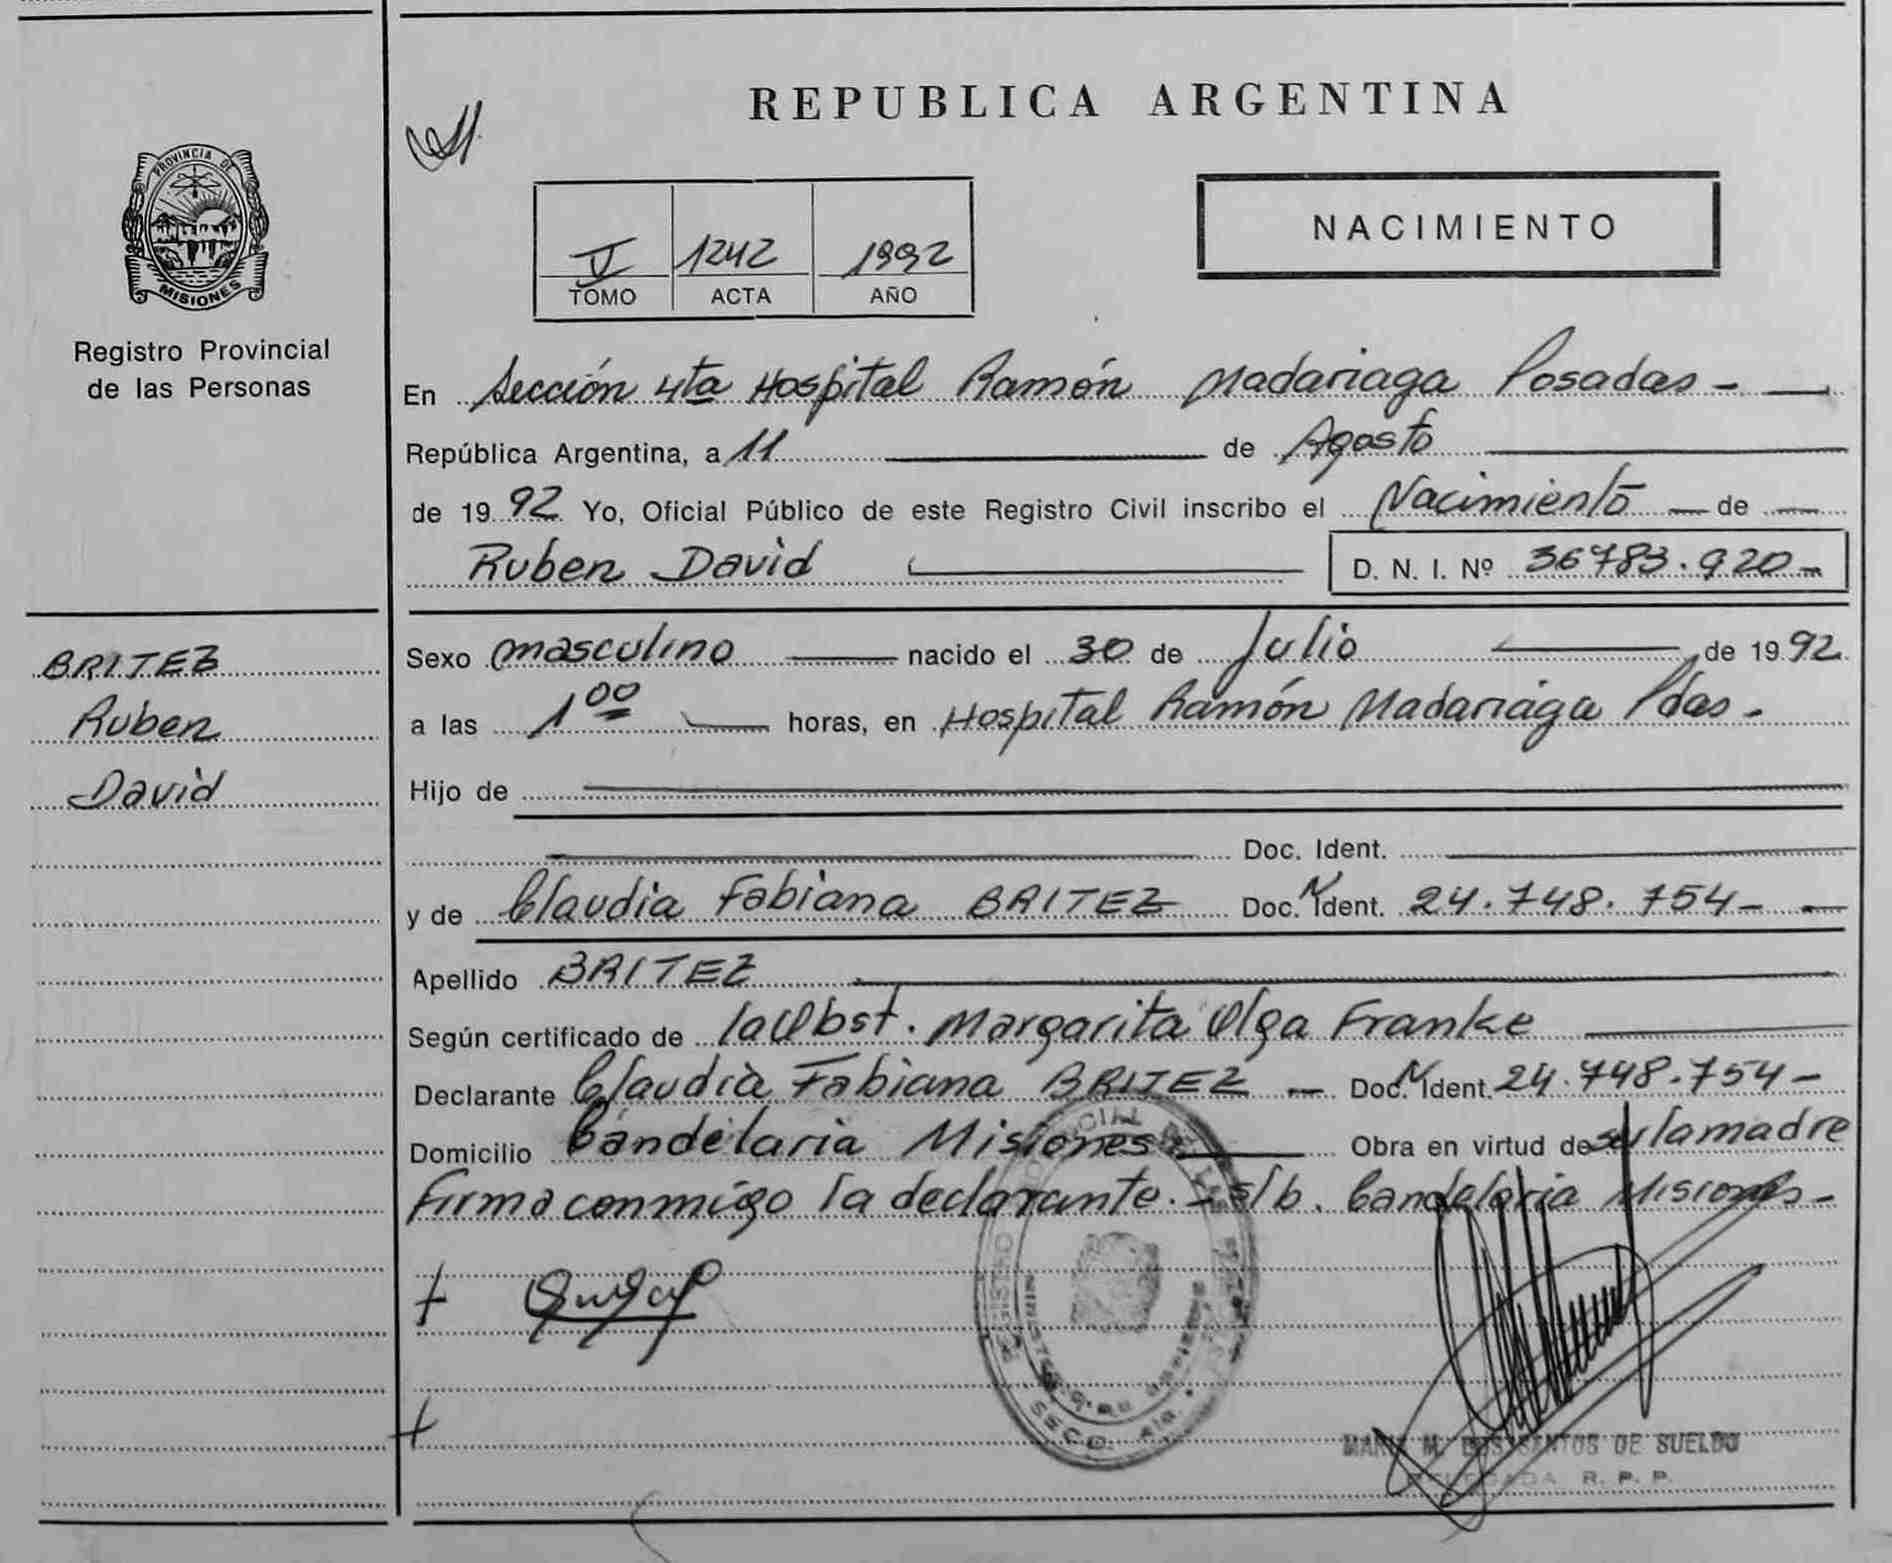 REPUBLICA ARGENTINA
PROVINCIA DE
MISIONES
Registro Provincial
de las Personas
V 1242 1992
TOMO ACTA AÑO
NACIMIENTO
En Sección 4ta Hospital Ramón Madariaga Posadas -
República Argentina, a 11 de Agosto
de 1992 Yo, Oficial Público de este Registro Civil inscribo el Nacimiento de
Ruben David D. N. I. Nº 36783.920-
BRITEZ
Ruben
David
Sexo masculino nacido el 30 de Julio de 1992
a las 1 00 horas, en Hospital Ramón Madariaga Pdas.
Hijo de
Doc. Ident.
y de Claudia Fabiana BRITEZ Doc. N Ident. 24.748.754-
Apellido BRITEZ
Según certificado de la Obst. Margarita Olga Franke
Declarante Claudia Fabiana BRITEZ - Doc. N Ident. 24.748.754-
Domicilio Candelaria Misiones Obra en virtud de ser la madre
firma conmigo la declarante. - s/b. Candelaria Misiones-
MARIA M. DOS SANTOS DE SUELDO
DELEGADA R. P. P.